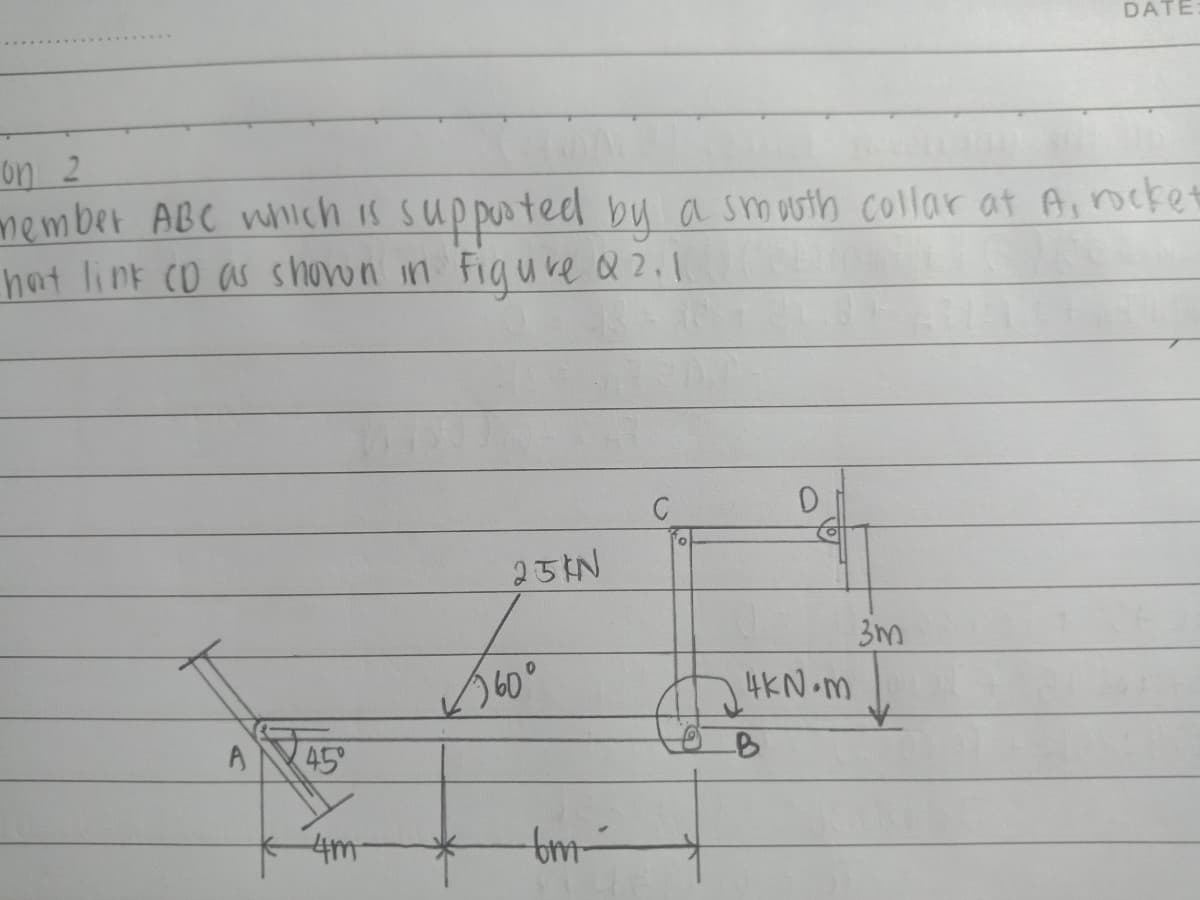 DATE:
on 2
member ABC which is supported by a smooth collar at A, rocket
hort link CD as shown in Figure Q2.1
C
D
25KN
3m
60°
4KN.m
A
45°
B
4m
6m